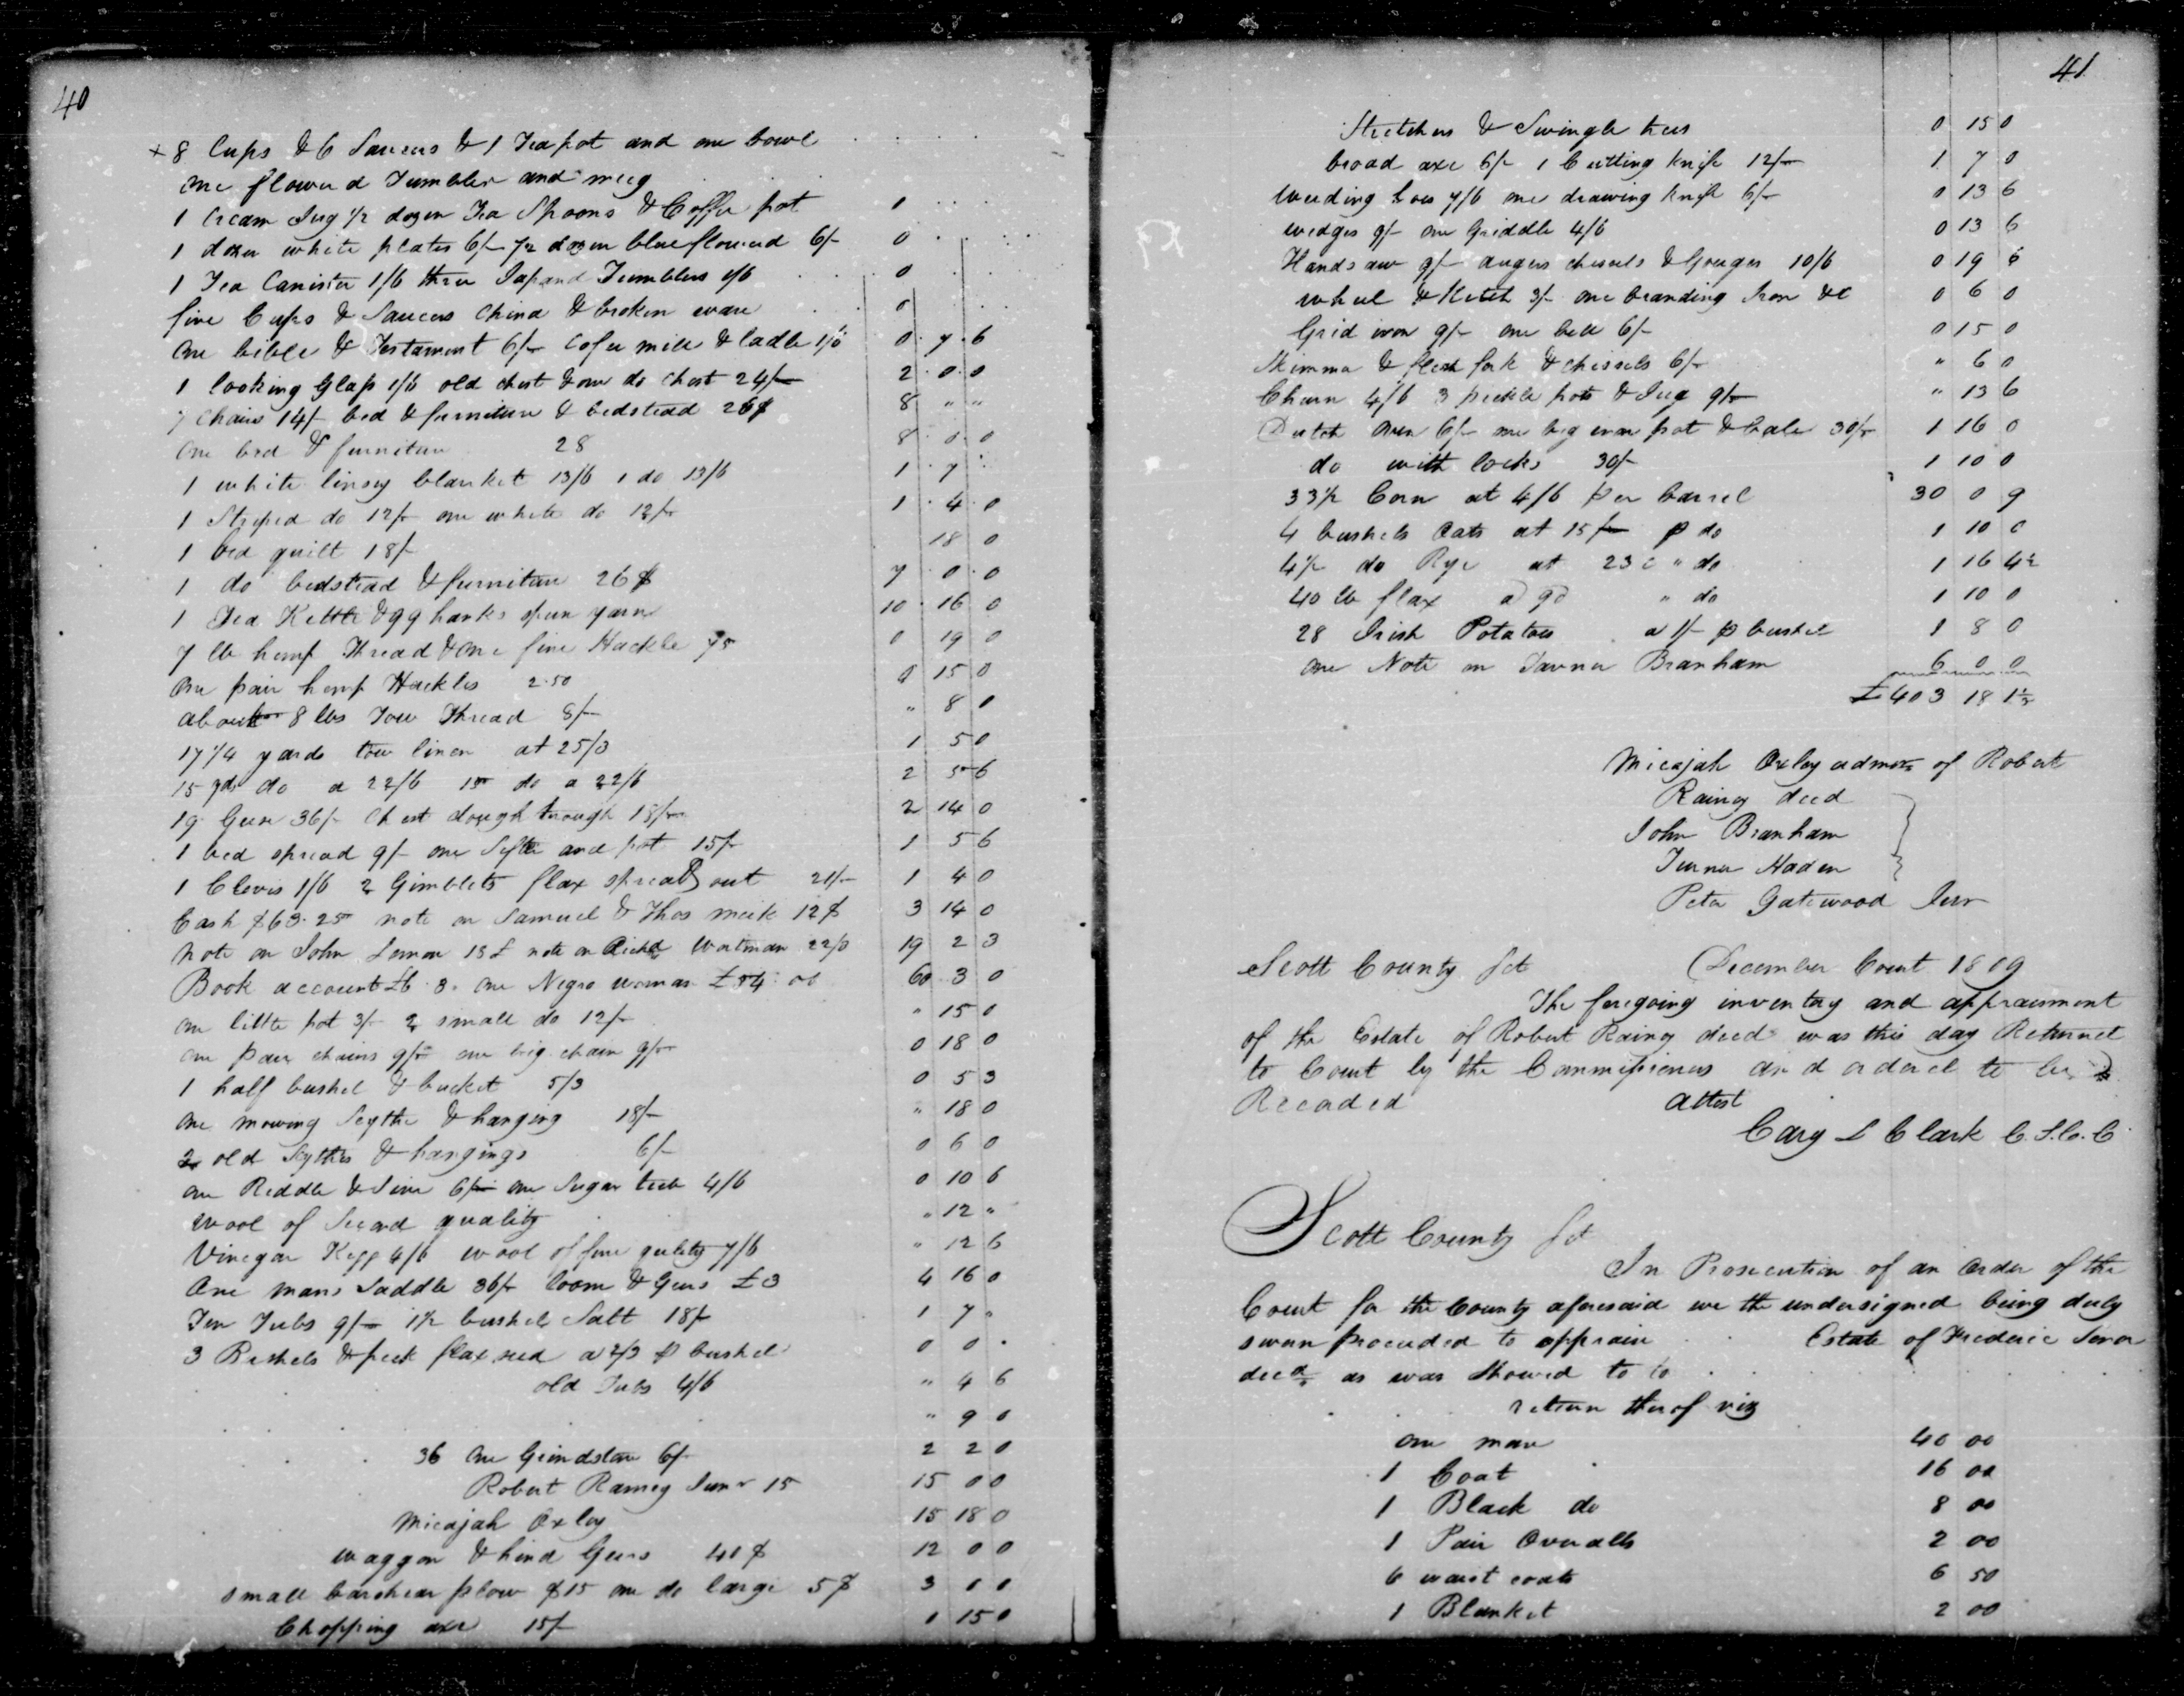 40
+ 8 Cups & 6 Saucers & 1 Teapot and one bowl
one flowerd Tumbler and mug
1 Cream Jug 1/2 dozen Tea Spoons & Coffee pot 1
1 dozen white plates 6/- 1/2 dozen blue flowered 6/- 0
1 Tea Canister 1/6 three Japand Tumblers 1/6 0
five Cups & Saucers China & broken ware 0
One bible & Testament 6/- Cofee mill & ladle 1/6 0 . 7 . 6
1 looking Glass 1/6 old chest & one do Chest 24/- 2 . 0 . 0
7 Chairs 14/- bed & furniture & bedstead 26$ 8 " "
One bed & furniture 28 8 . 0 . 0
1 white linsey blanket 13/6 1 do 13/6 1 . 7
1 Striped do 12/- one white do 12/- 1 . 4 . 0
1 bed quilt 18/- 18 0
1 do bedstead & furniture 26$ 7 . 0 . 0
1 Tea Kettle & 99 hanks spun yarn 10 . 16 0
7 lb hemp Thread & one fine Hackle 0 19 0
One pair hemp Hackles 2.50 0 15 0
about 8 lbs Tow Thread 8/- " 8 0
17 1/4 yards tow linen at 25/3 1 5 0
15 yds do a 22/6 15 do a 22/6 2 5 6
19 Geese 36/- Chest dough trough 18/- 2 14 0
1 bed spread 9/- one Sifter and pot 15/- 1 5 6
1 Clevis 1/6 2 Gimblets flax spread out 21/- 1 4 0
Cash $63.25 note on Samuel & Thos meek 12$ 3 14 0
Note on John Lemon 18£ note on Richd Workman 22/3 19 2 3
Book account £6.3. One Negro woman £54.00 60 3 0
One little pot 3/- 2 small do 12/- " 15 0
One pair chains 9/- one big chain 9/- 0 18 0
1 half bushel & bucket 5/3 0 5 3
One mowing Scythe & hanging 18/- " 18 0
2 old Scythes & hangings 6/- 0 6 0
One Riddle & Sive 6/- one Sugar tub 4/6 0 10 6
Wool of Second quality " 12 "
Vinegar Kegg 4/6 wool of fine qulity 7/6 " 12 6
One mans Saddle 36/- loom & Gears £3 4 16 0
Ten Tubs 9/- 1 1/2 bushels Salt 18/- 1 7 "
3 Bushels & peck flax seed a 2/3 p bushel 0 0
old Tubs 4/6 " 4 6
" 9 0
36 One Grindstone 6/- 2 2 0
Robert Ramey Junr 15 15 0 0
Micajah Oxley 15 18 0
Waggon & hind Gears 40$ 12 0 0
small barshear plow $15 one do large 5$ 3 0 0
Chopping axe 15/- 0 15 0
41
Stretchers & Swingle trees 0 15 0
broad axe 6/- 1 Cutting knife 12/- 1 7 0
Weeding hoes 7/6 one drawing knife 6/- 0 13 6
wedges 9/- one Griddle 4/6 0 13 6
Handsaw 9/- augers chessels & Gouges 10/6 0 19 6
wheel & Ketch 3/- one branding Iron &c 0 6 0
Grid iron 9/- one bell 6/- 0 15 0
Skimma & flesh fork & chissels 6/- " 6 0
Churn 4/6 3 peckle pots & Jug 9/- " 13 6
Dutch Oven 6/- one big iron pot & bale 30/- 1 16 0
do with locks 30/- 1 10 0
33 1/2 Corn at 4/6 per barrel 30 0 9
4 bushels Oats at 15/- p do 1 10 0
4 1/2 do Rye at 23 " do 1 16 4 1/2
40 lb flax a 9d " do 1 10 0
28 Irish Potatoes a 1/- p bushel 1 8 0
One Note on Tavner Branham 6 0 0
£403 18 1 1/2
Micajah Oxley admor of Robert
Rainey decd
John Branham
Turner Haden
Peter Gatewood Junr
Scott County Sct December Court 1809
The foregoing inventory and appraisment
of the Estate of Robert Rainey decd was this day Returned
to Court by the Commissioners and ordered to be
Recorded attest
Cary L Clark C.S.C.C.
Scott County Sct
In Prosecution of an order of the
Court for the County aforesaid we the undersigned being duly
sworn proceeded to appraise Estate of Frederic
decd as was Showed to
return therof viz
One mare 40 00
1 Coat 16 00
1 Black do 8 00
1 Pair Overalls 2 00
6 waist coats 6 50
1 Blanket 2 00